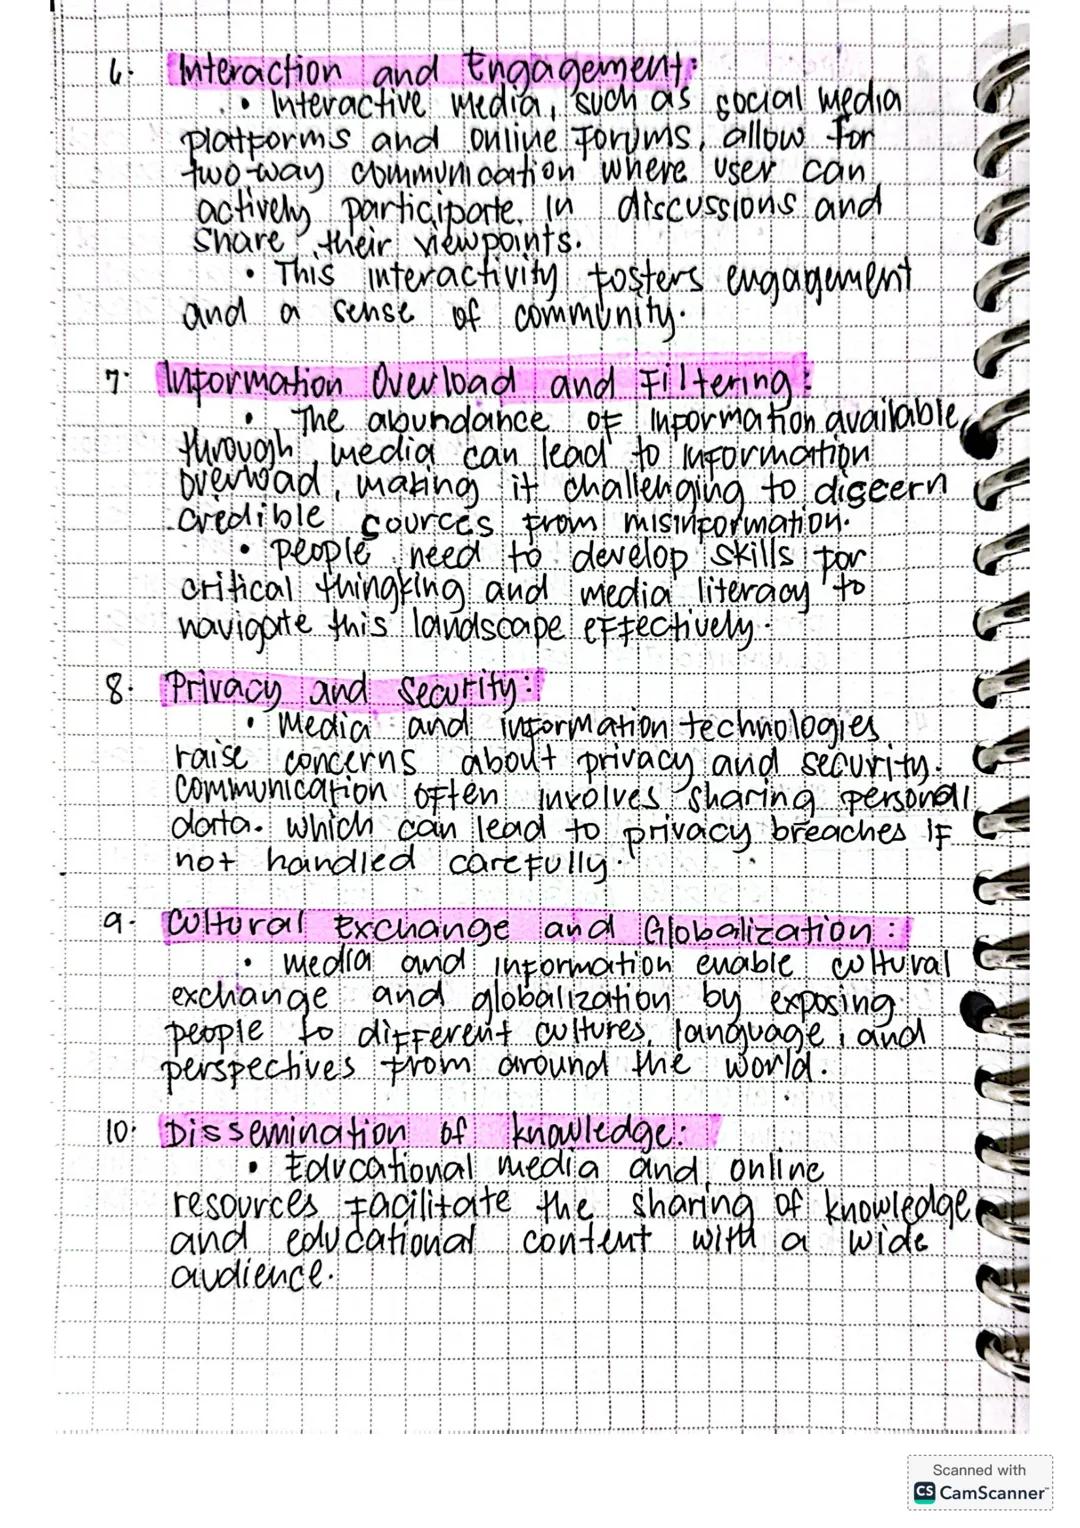 6. Interaction and Engagement:
• Interactive media, such as social media
platforms and online forums, allow for
two-way communication where user can
actively participate. in discussions and
share their viewpoints.
• This interactivity fosters engagement
and a sense of community.
7. Information Overload and Filtering:
• The abundance of information available
through media can lead to information
overload, making it challenging to discern
credible sources from misinformation.
• people need to develop skills for
critical thingking and media literacy to
navigate this landscape effectively.
8. Privacy and Security:
• Media and information technologies
raise concerns about privacy and security.
Communication often involves sharing personal
data. which can lead to privacy breaches if
not handled carefully.
9. Cultural Exchange and Globalization:
• media and information enable cultural
exchange and globalization by exposing
people to different cultures, language, and
perspectives from around the world.
10. Dissemination of knowledge:
• Educational media and online
resources facilitate the sharing of knowledge
and educational content with a wide
audience.
Scanned with
CS CamScanner